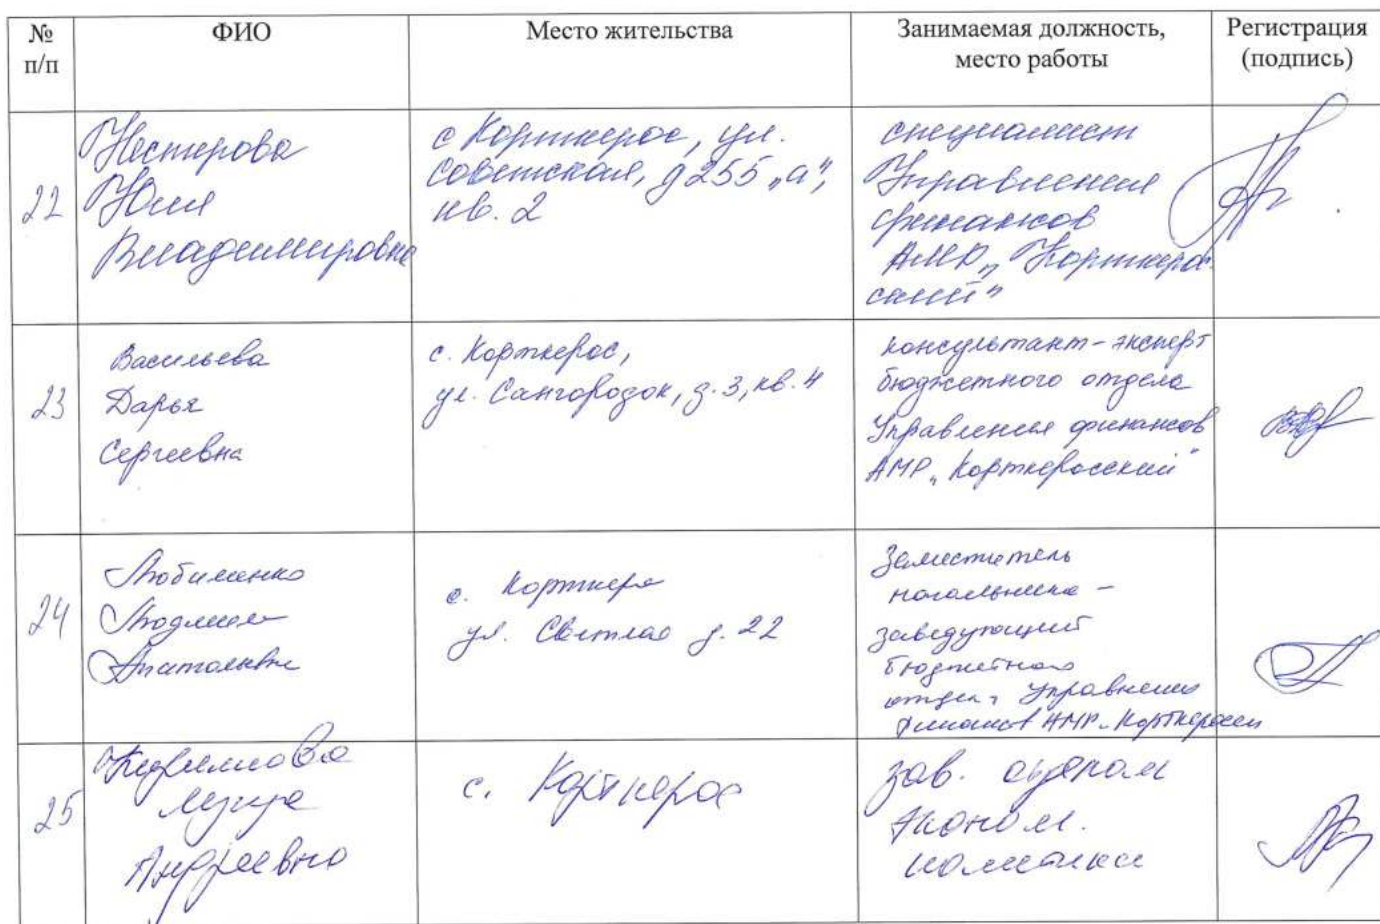 № п/п
ФИО
Место жительства
Занимаемая должность, место работы
Регистрация (подпись)
22
Нестерова
Юлия
Владимировна
с Корткерос, ул.
Советская, д 255 „а",
кв. 2
специалист
Управления
финансов
АМР „Корткерос
ский"
23
Васильева
Дарья
Сергеевна
с. Корткерос,
ул. Сангородок, д. 3, кв. 4
консультант-эксперт
бюджетного отдела
Управления финансов
АМР „Корткеросский"
24
Любименко
Людмила
Анатольевна
с. Корткерос
ул. Светлая д. 22
Заместитель
начальника -
заведующий
бюджетного
отдела Управления
финансов АМР „Корткеросский
25
Андреевна
с. Корткерос
зав. отделом
эконом.
политики